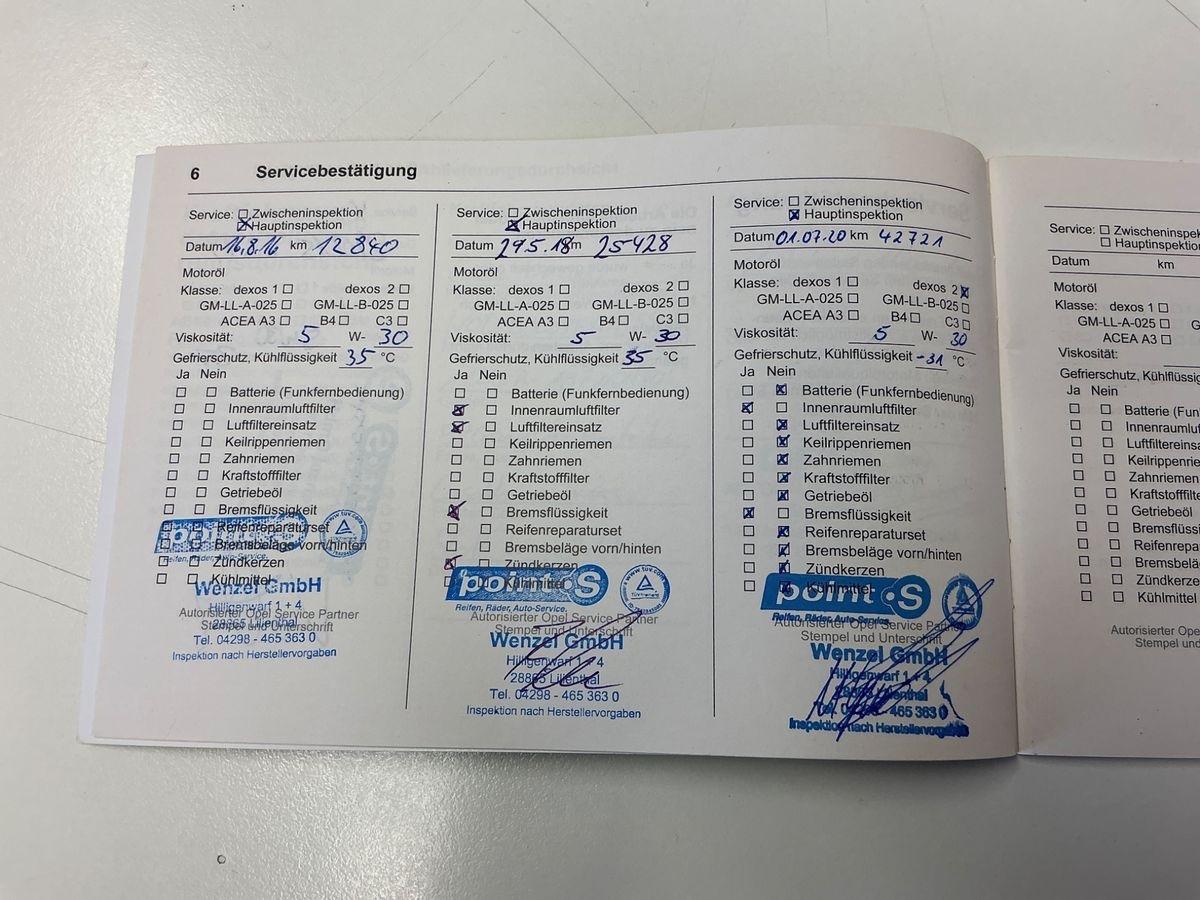 6 Servicebestätigung
Service: Zwischeninspektion
Hauptinspektion
Datum 16.8.16 km 12840
Motoröl
Klasse: dexos 1 dexos 2
GM-LL-A-025 GM-LL-B-025
ACEA A3 B4 C3
Viskosität: 5 W- 30
Gefrierschutz, Kühlflüssigkeit 35 °C
Ja Nein
Batterie (Funkfernbedienung)
Innenraumluftfilter
Luftfiltereinsatz
Keilrippenriemen
Zahnriemen
Kraftstofffilter
Getriebeöl
Bremsflüssigkeit
Reifenreparaturset
Bremsbeläge vorn/hinten
Zündkerzen
Kühlmittel
point S
Reifen, Räder, Auto-Service.
www.tuv.com
Wenzel GmbH
Hilligenwarf 1 + 4
Autorisierter Opel Service Partner
28865 Lilienthal
Stempel und Unterschrift
Tel. 04298 - 465 363 0
Inspektion nach Herstellervorgaben
Service: Zwischeninspektion
Hauptinspektion
Datum 29.5.18 km 25428
Motoröl
Klasse: dexos 1 dexos 2
GM-LL-A-025 GM-LL-B-025
ACEA A3 B4 C3
Viskosität: 5 W- 30
Gefrierschutz, Kühlflüssigkeit 35 °C
Ja Nein
Batterie (Funkfernbedienung)
Innenraumluftfilter
Luftfiltereinsatz
Keilrippenriemen
Zahnriemen
Kraftstofffilter
Getriebeöl
Bremsflüssigkeit
Reifenreparaturset
Bremsbeläge vorn/hinten
Zündkerzen
Kühlmittel
point S
Reifen, Räder, Auto-Service.
www.tuv.com
Autorisierter Opel Service Partner
Stempel und Unterschrift
Wenzel GmbH
Hilligenwarf 1 + 4
28865 Lilienthal
Tel. 04298 - 465 363 0
Inspektion nach Herstellervorgaben
Service: Zwischeninspektion
Hauptinspektion
Datum 01.07.20 km 42721
Motoröl
Klasse: dexos 1 dexos 2
GM-LL-A-025 GM-LL-B-025
ACEA A3 B4 C3
Viskosität: 5 W- 30
Gefrierschutz, Kühlflüssigkeit -31 °C
Ja Nein
Batterie (Funkfernbedienung)
Innenraumluftfilter
Luftfiltereinsatz
Keilrippenriemen
Zahnriemen
Kraftstofffilter
Getriebeöl
Bremsflüssigkeit
Reifenreparaturset
Bremsbeläge vorn/hinten
Zündkerzen
Kühlmittel
point S
Reifen, Räder, Auto-Service.
Autorisierter Opel Service Partner
Stempel und Unterschrift
Wenzel GmbH
Hilligenwarf 1 + 4
28865 Lilienthal
Tel. 04298 - 465 363 0
Inspektion nach Herstellervorgaben
Service: Zwischeninspekt
Hauptinspektion
Datum km
Motoröl
Klasse: dexos 1
GM-LL-A-025 G
ACEA A3
Viskosität:
Gefrierschutz, Kühlflüssig
Ja Nein
Batterie (Fun
Innenraumluf
Luftfiltereinsa
Keilrippenrie
Zahnriemen
Kraftstofffilter
Getriebeöl
Bremsflüssi
Reifenrepara
Bremsbeläg
Zündkerzen
Kühlmittel
Autorisierter Opel
Stempel und